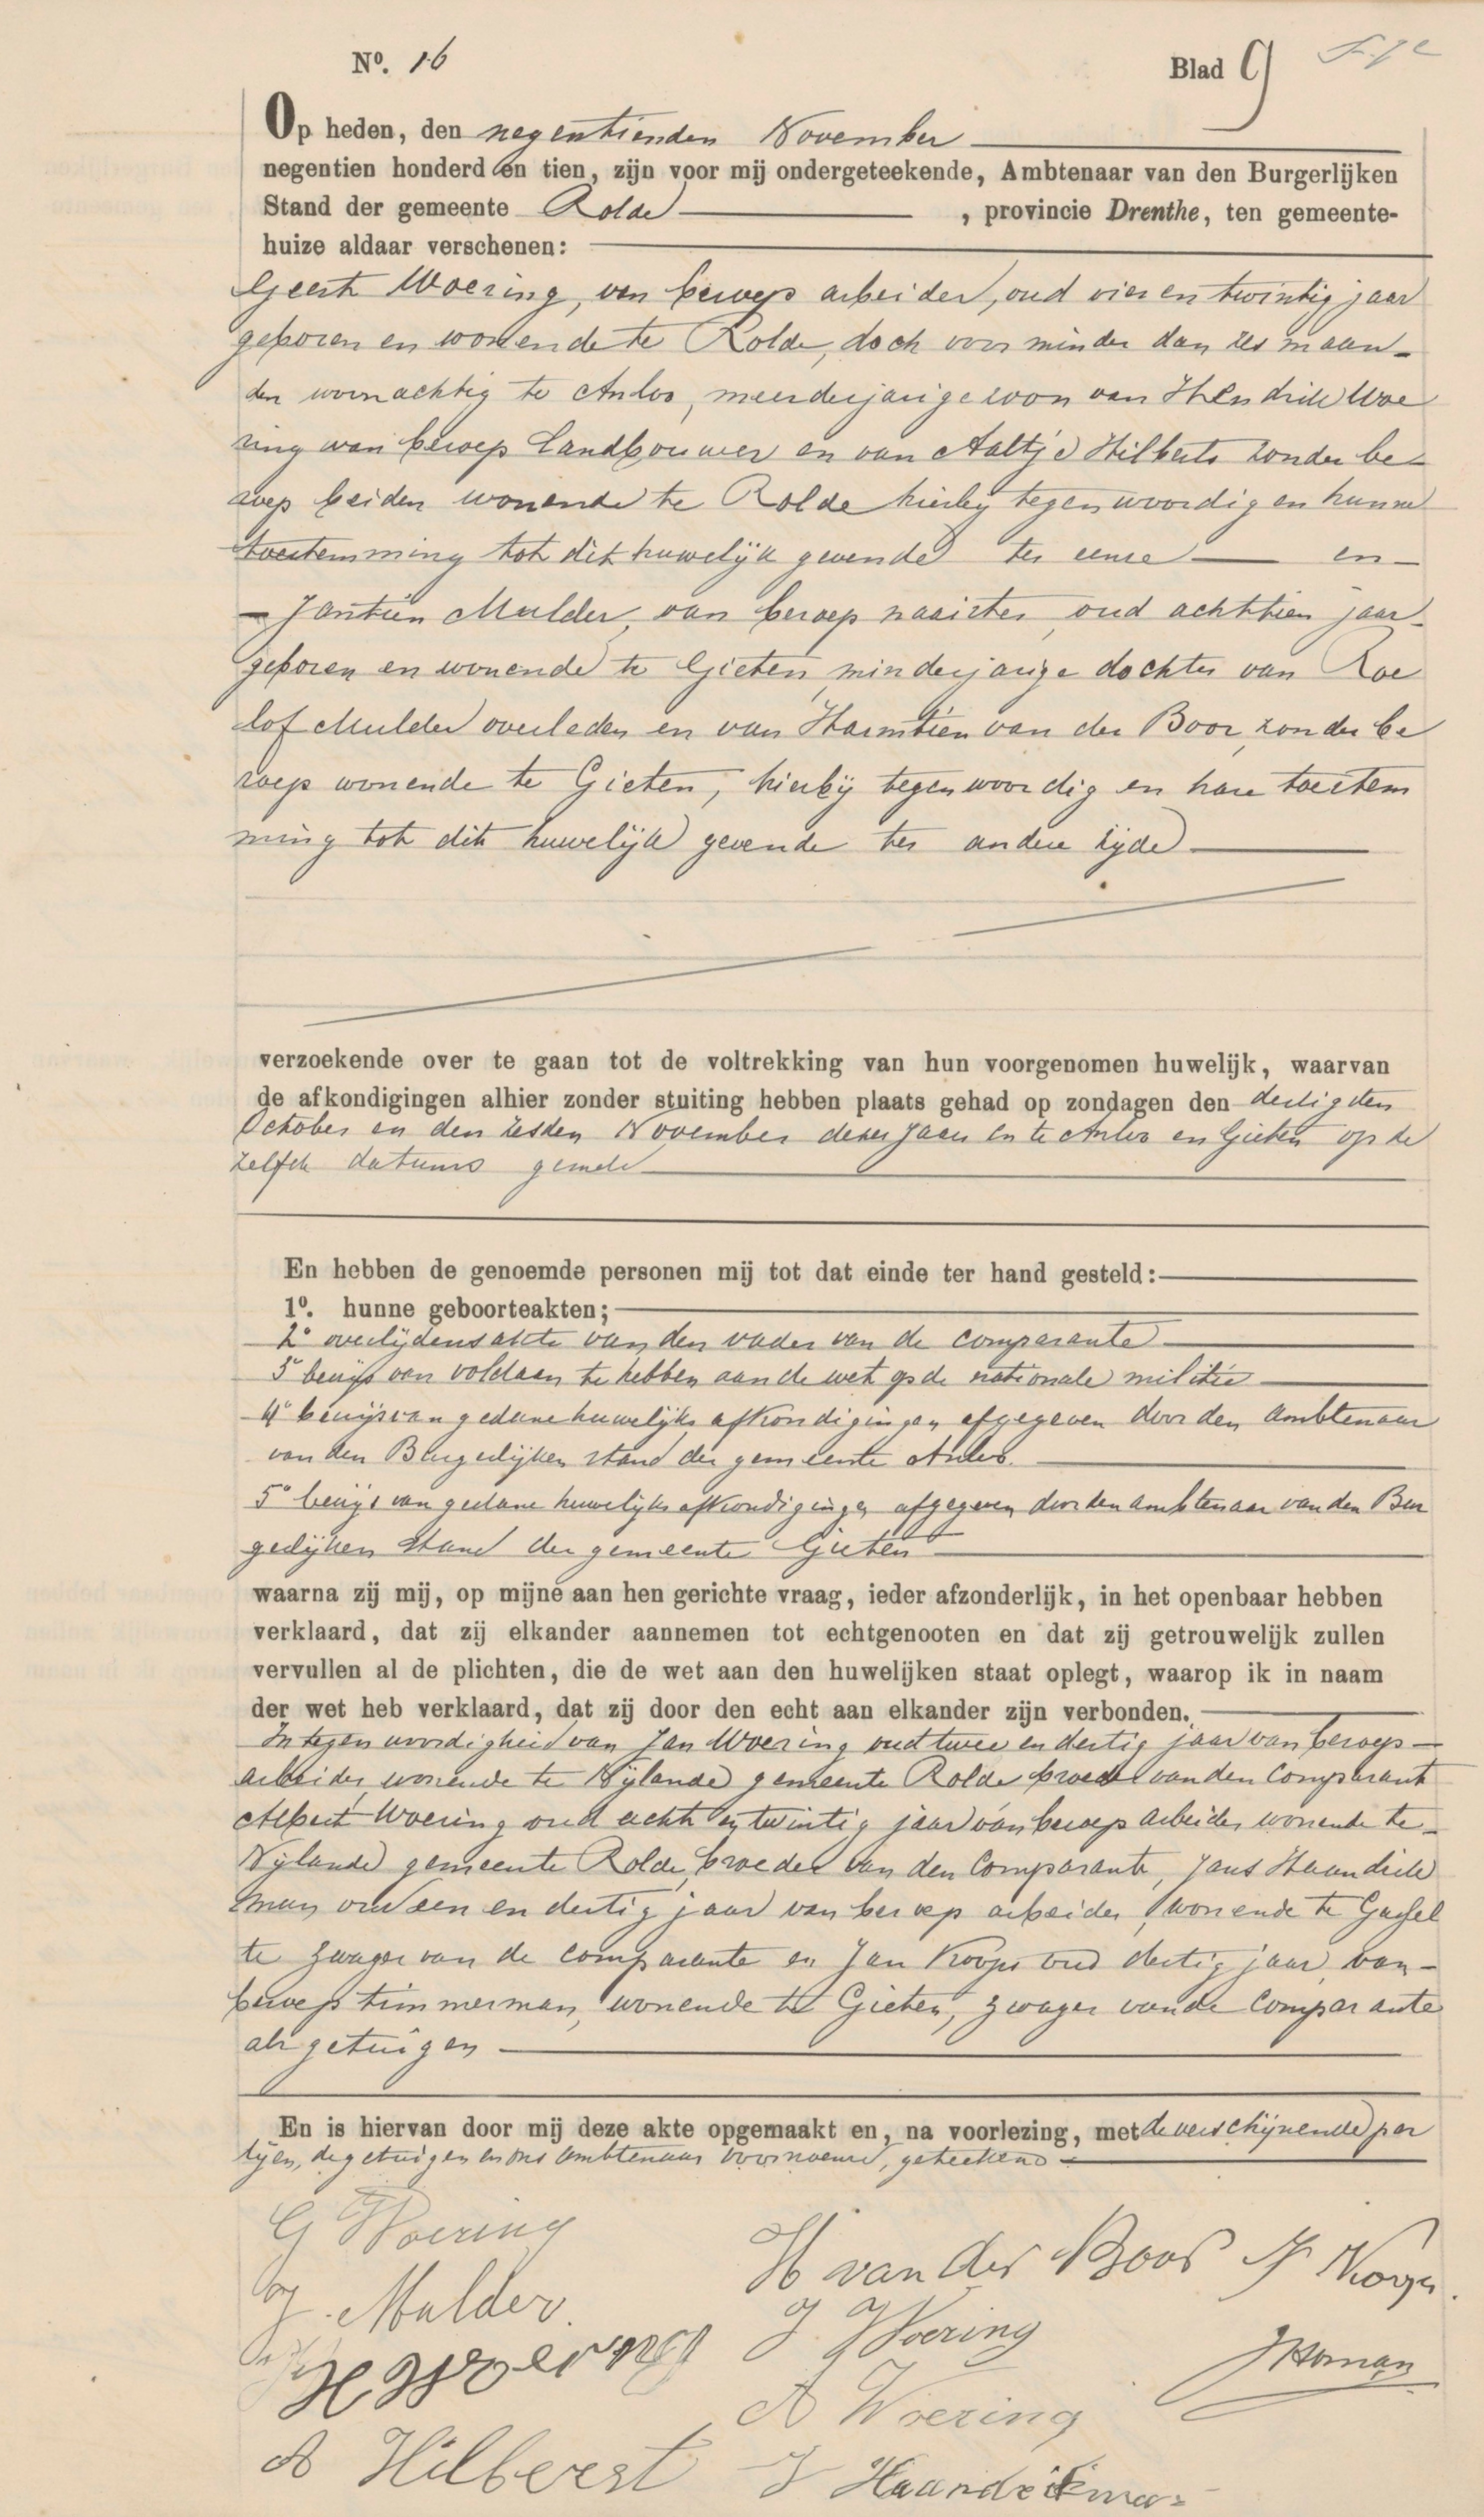 Nº. 16
Blad 9
Op heden, den negentienden November
negentien honderd en tien, zijn voor mij ondergeteekende, Ambtenaar van den Burgerlijken
Stand der gemeente Rolde, provincie Drenthe, ten gemeente-
huize aldaar verschenen:
Geert Woering, van beroep arbeider, oud vier en twintig jaar
geboren en wonende te Rolde, doch voor minder dan zes maan-
den woonachtig te Anloo, meerderjarige zoon van Hendrik Woe
ring van beroep Landbouwer en van Aaltje Hilberts zonder be
roep beiden wonende te Rolde hierbij tegenwoordig en hunne
toestemming tot dit huwelijk gevende ter eenre en
Jantien Mulder, van beroep naaister, oud achttien jaar
geboren en wonende te Gieten, minderjarige dochter van Roe
lof Mulder overleden en van Harmtien van der Boor, zonder be
roep wonende te Gieten, hierbij tegenwoordig en hare toestem
ming tot dit huwelijk gevende ter andere zijde
verzoekende over te gaan tot de voltrekking van hun voorgenomen huwelijk, waarvan
de afkondigingen alhier zonder stuiting hebben plaats gehad op zondagen den dertigsten
October en den zesden November dezer jaar en te Anloo en Gieten op de
zelfde datums gemeld
En hebben de genoemde personen mij tot dat einde ter hand gesteld:
1º. hunne geboorteakten;
2º overlijdensakte van den vader van de comparante
3º bewijs van voldaan te hebben aan de wet op de nationale militie
4º bewijs van gedane huwelijks afkondigingen afgegeven door den Ambtenaar
van den Burgerlijken stand der gemeente Anloo.
5º bewijs van gedane huwelijks afkondigingen afgegeven door den ambtenaar van den Bur
gerlijken stand der gemeente Gieten
waarna zij mij, op mijne aan hen gerichte vraag, ieder afzonderlijk, in het openbaar hebben
verklaard, dat zij elkander aannemen tot echtgenooten en dat zij getrouwelijk zullen
vervullen al de plichten, die de wet aan den huwelijken staat oplegt, waarop ik in naam
der wet heb verklaard, dat zij door den echt aan elkander zijn verbonden.
In tegenwoordigheid van Jan Woering oud twee en dertig jaar van beroep
arbeider, wonende te Nijlande gemeente Rolde broeder van den Comparant
Albert Woering oud acht en twintig jaar van beroep arbeider wonende te
Nijlande gemeente Rolde, broeder van den Comparant, Jans Haandrik
man oud een en dertig jaar van beroep arbeider, wonende te Gassel
te zwager van de comparante en Jan Koops oud dertig jaar, van
beroep timmerman, wonende te Gieten, zwager van de Comparante
als getuigen
En is hiervan door mij deze akte opgemaakt en, na voorlezing, met de verschijnende par
tijen, de getuigen en ons Ambtenaar voornoemd, geteekend
G Woering
J. Mulder
H Woering
A Hilberst
H van der Boor
J Koops
J. Woering
A Woering
J Haandrikman
JHoman